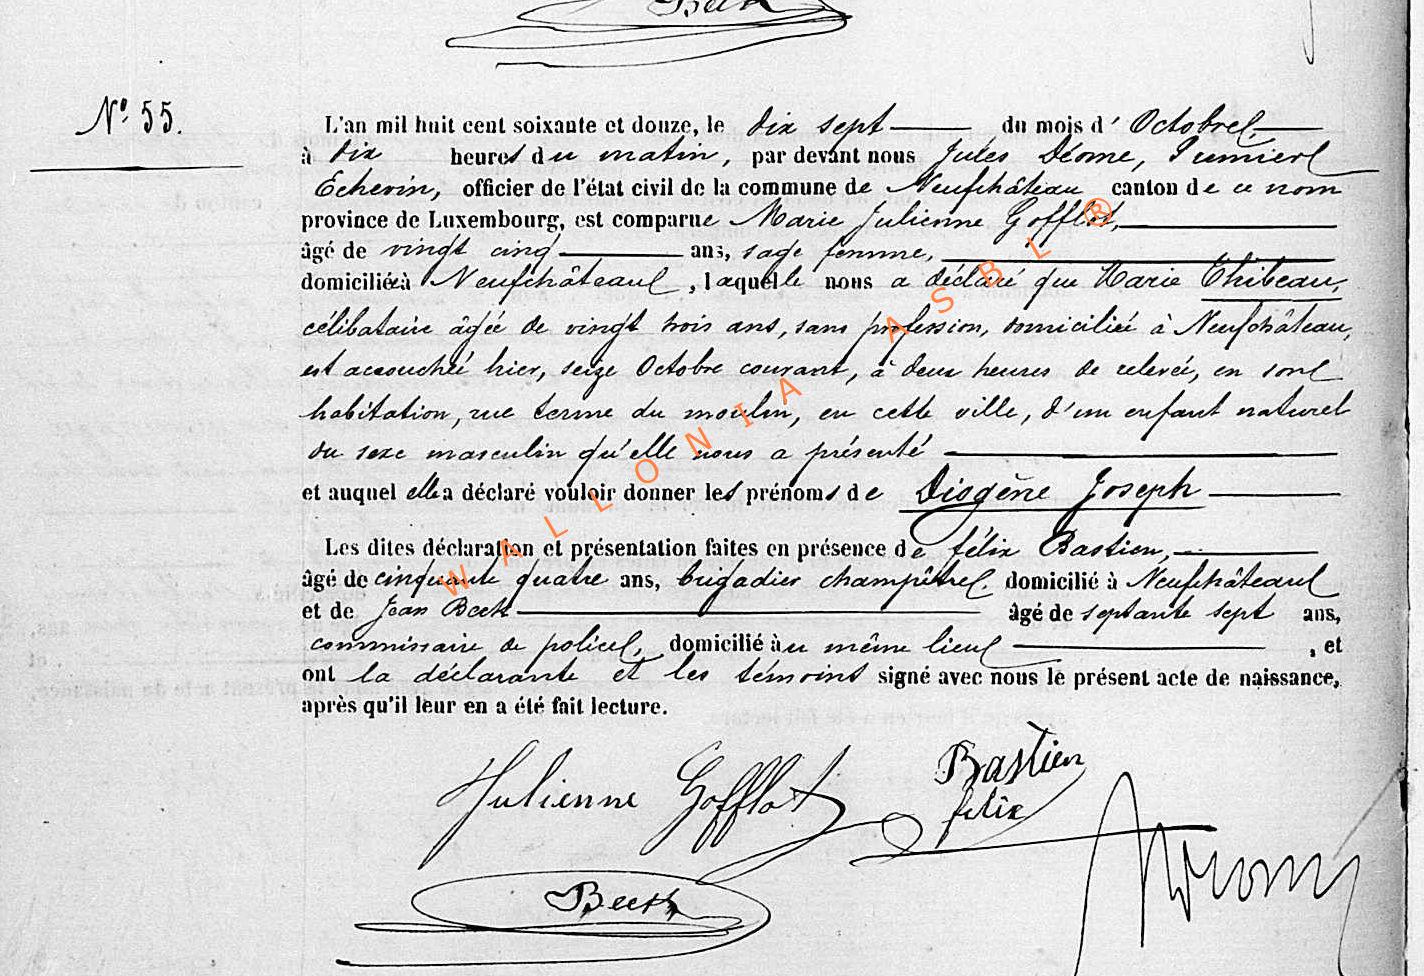 Beck
Nº 55.
L'an mil huit cent soixante et douze, le dix sept du mois d'Octobre,
à dix heures du matin, par devant nous Jules Déome, Premier
Echevin, officier de l'état civil de la commune de Neufchâteau canton de ce nom
province de Luxembourg, est comparue Marie Julienne Gofflot,
âgé de vingt cinq ans, sage femme,
domiciliéeà Neufchâteau, laquelle nous a déclaré que Marie Thibeau,
célibataire âgée de vingt trois ans, sans profession, domiciliée à Neufchâteau,
est accouchée hier, seize Octobre courant, à deux heures de relevée, en son
habitation, rue terme du moulin, en cette ville, d'un enfant naturel
du sexe masculin qu'elle nous a présenté
et auquel elle a déclaré vouloir donner les prénoms de Diogène Joseph
Les dites déclaration et présentation faites en présence de félix Bastien,
âgé de cinquante quatre ans, brigadier champêtre, domicilié à Neufchâteau
et de Jean Beck âgé de septante sept ans,
commissaire de police, domicilié au même lieu, et
ont la déclarante et les témoins signé avec nous le présent acte de naissance,
après qu'il leur en a été fait lecture.
Julienne Gofflot
Bastien
félix
Beck
WALLONIA ASBL ®